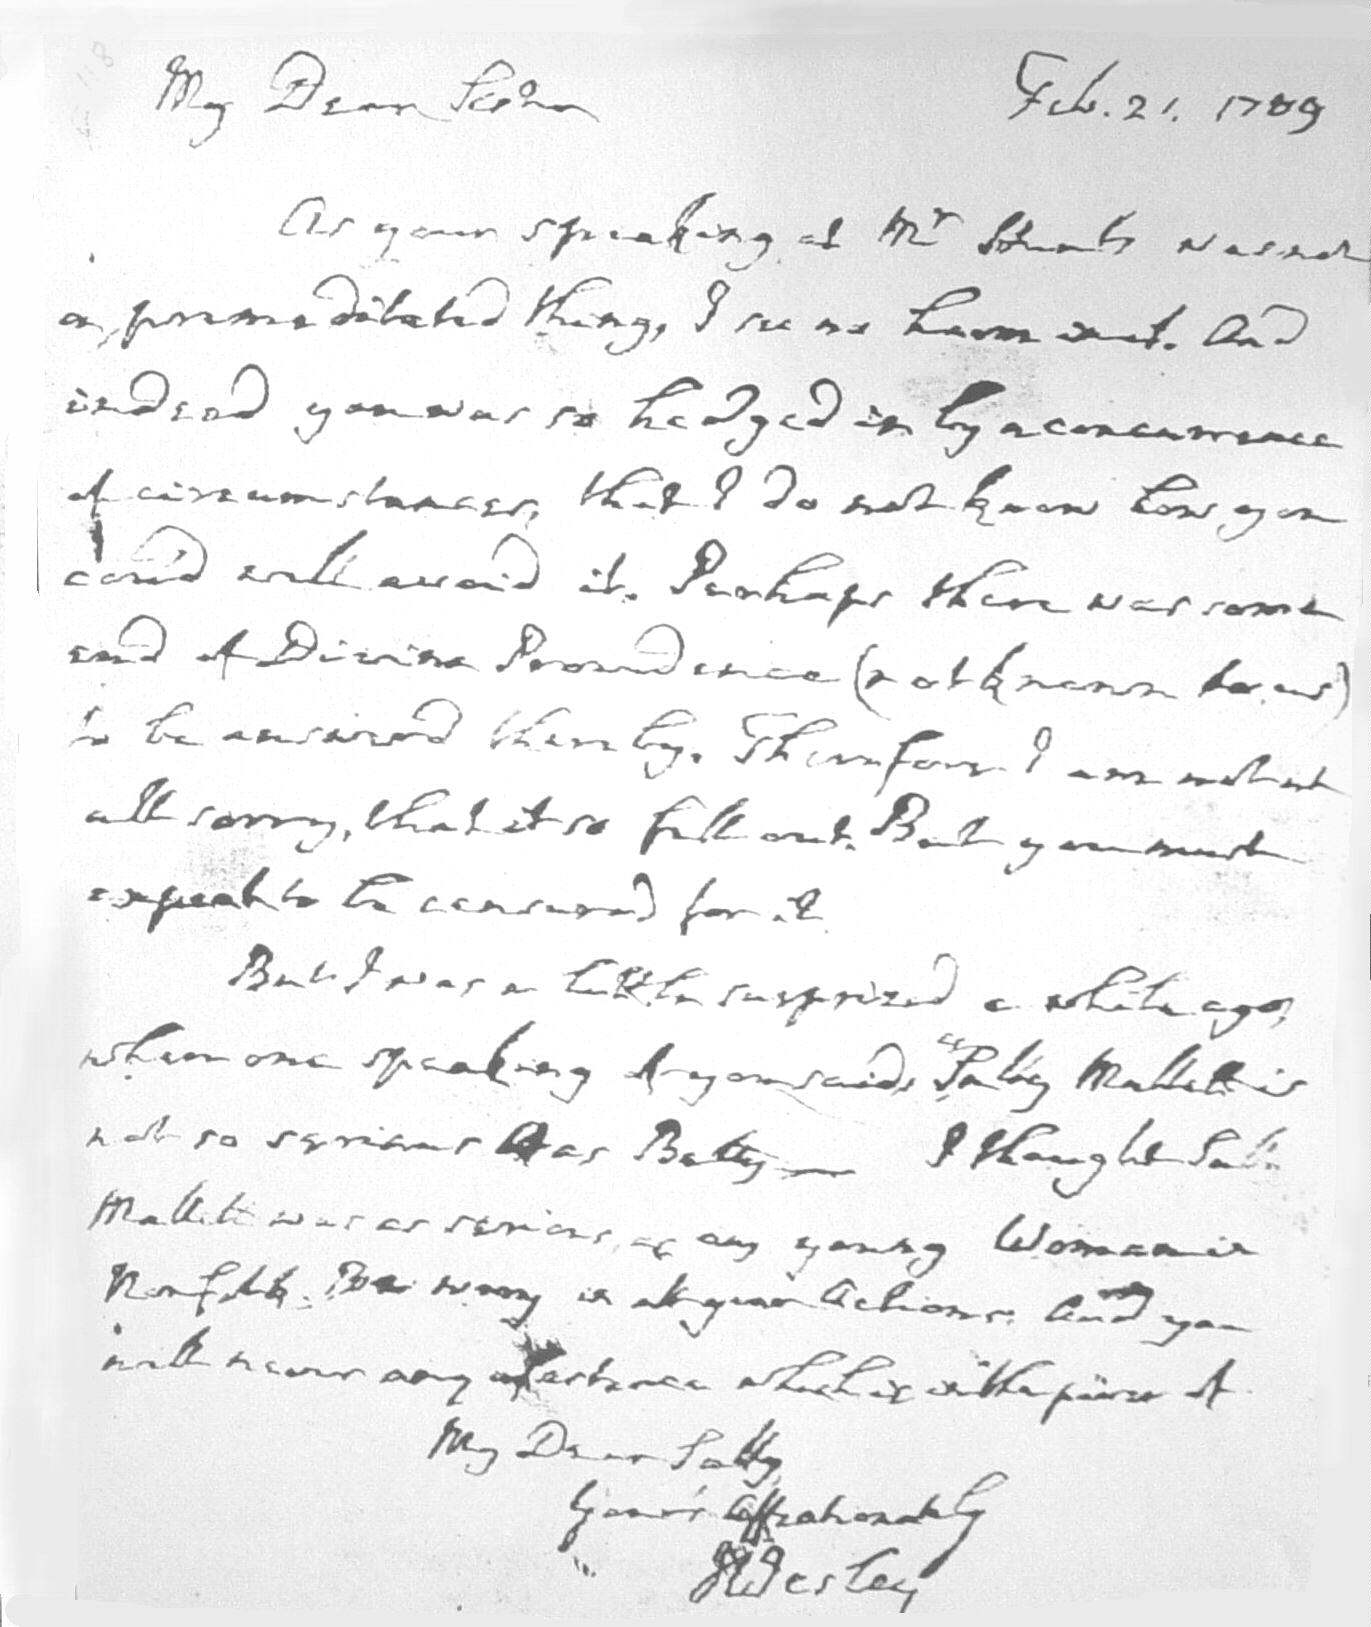 My Dear Sister
Feb. 21. 1789
As your speaking at Mr Hunts was not
a premeditated thing, I see no harm in it. And
indeed you was so hedged in by a concurrence
of circumstances, that I do not know how you
coud well avoid it. Perhaps there was some
end of Divine Providence (not known to us)
to be answered thereby. Therefore I am not at
all sorry, that it so fell out. But you must
expect to be censured for it.
But I was a little surprized a while ago,
when one speaking of you said, "Sally Mallett is
not so serious as Betty — I thought Sally
Mallett was as serious, as any young Woman in
Norfolk. Be wary in all your Actions. And you
will never any assistance which is in the power of
My Dear Sally
Your's Affectionately
J Wesley